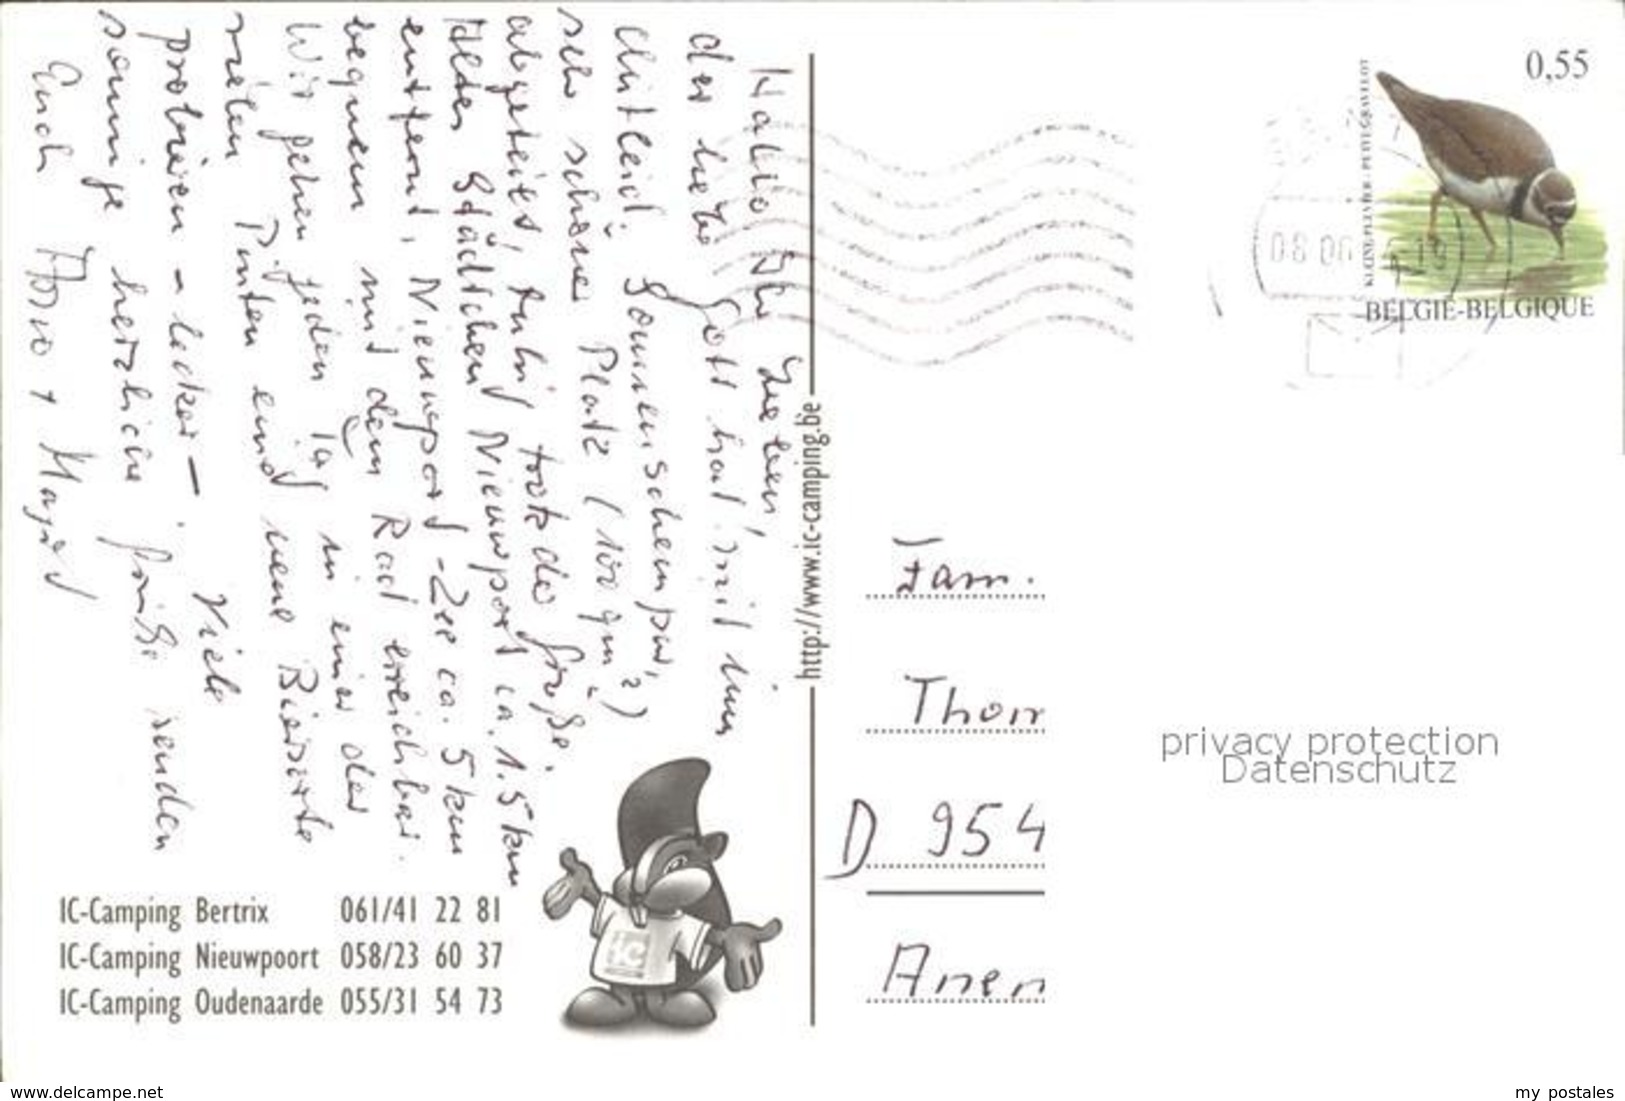 Hallo Ihr Lieben,
der liebe Gott hat mit uns
Mitleid. Sonnenschein pur,
sehr schöner Platz (100 qm²)
abgeteilt, ruhig trotz der Größe.
Altes Städtchen Nieuwport ca. 1.5 km
entfernt, Nieuwport-Zee ca. 5 km
bequem mit dem Rad erreichbar.
Wir gehen jeden Tag in eine der
vielen und neue Biersorte
probieren - lecker - Viele
sonnige herzliche Grüße senden
Euch +
http://www.ic-camping.be
IC-Camping Bertrix 061/41 22 81
IC-Camping Nieuwpoort 058/23 60 37
IC-Camping Oudenaarde 055/31 54 73
iC
0,55
KLEINE PLEVIER - PETIT GRAVELOT
BELGIE-BELGIQUE
Fam.
Thom
D 954
privacy protection
Datenschutz
www.delcampe.net
my postales